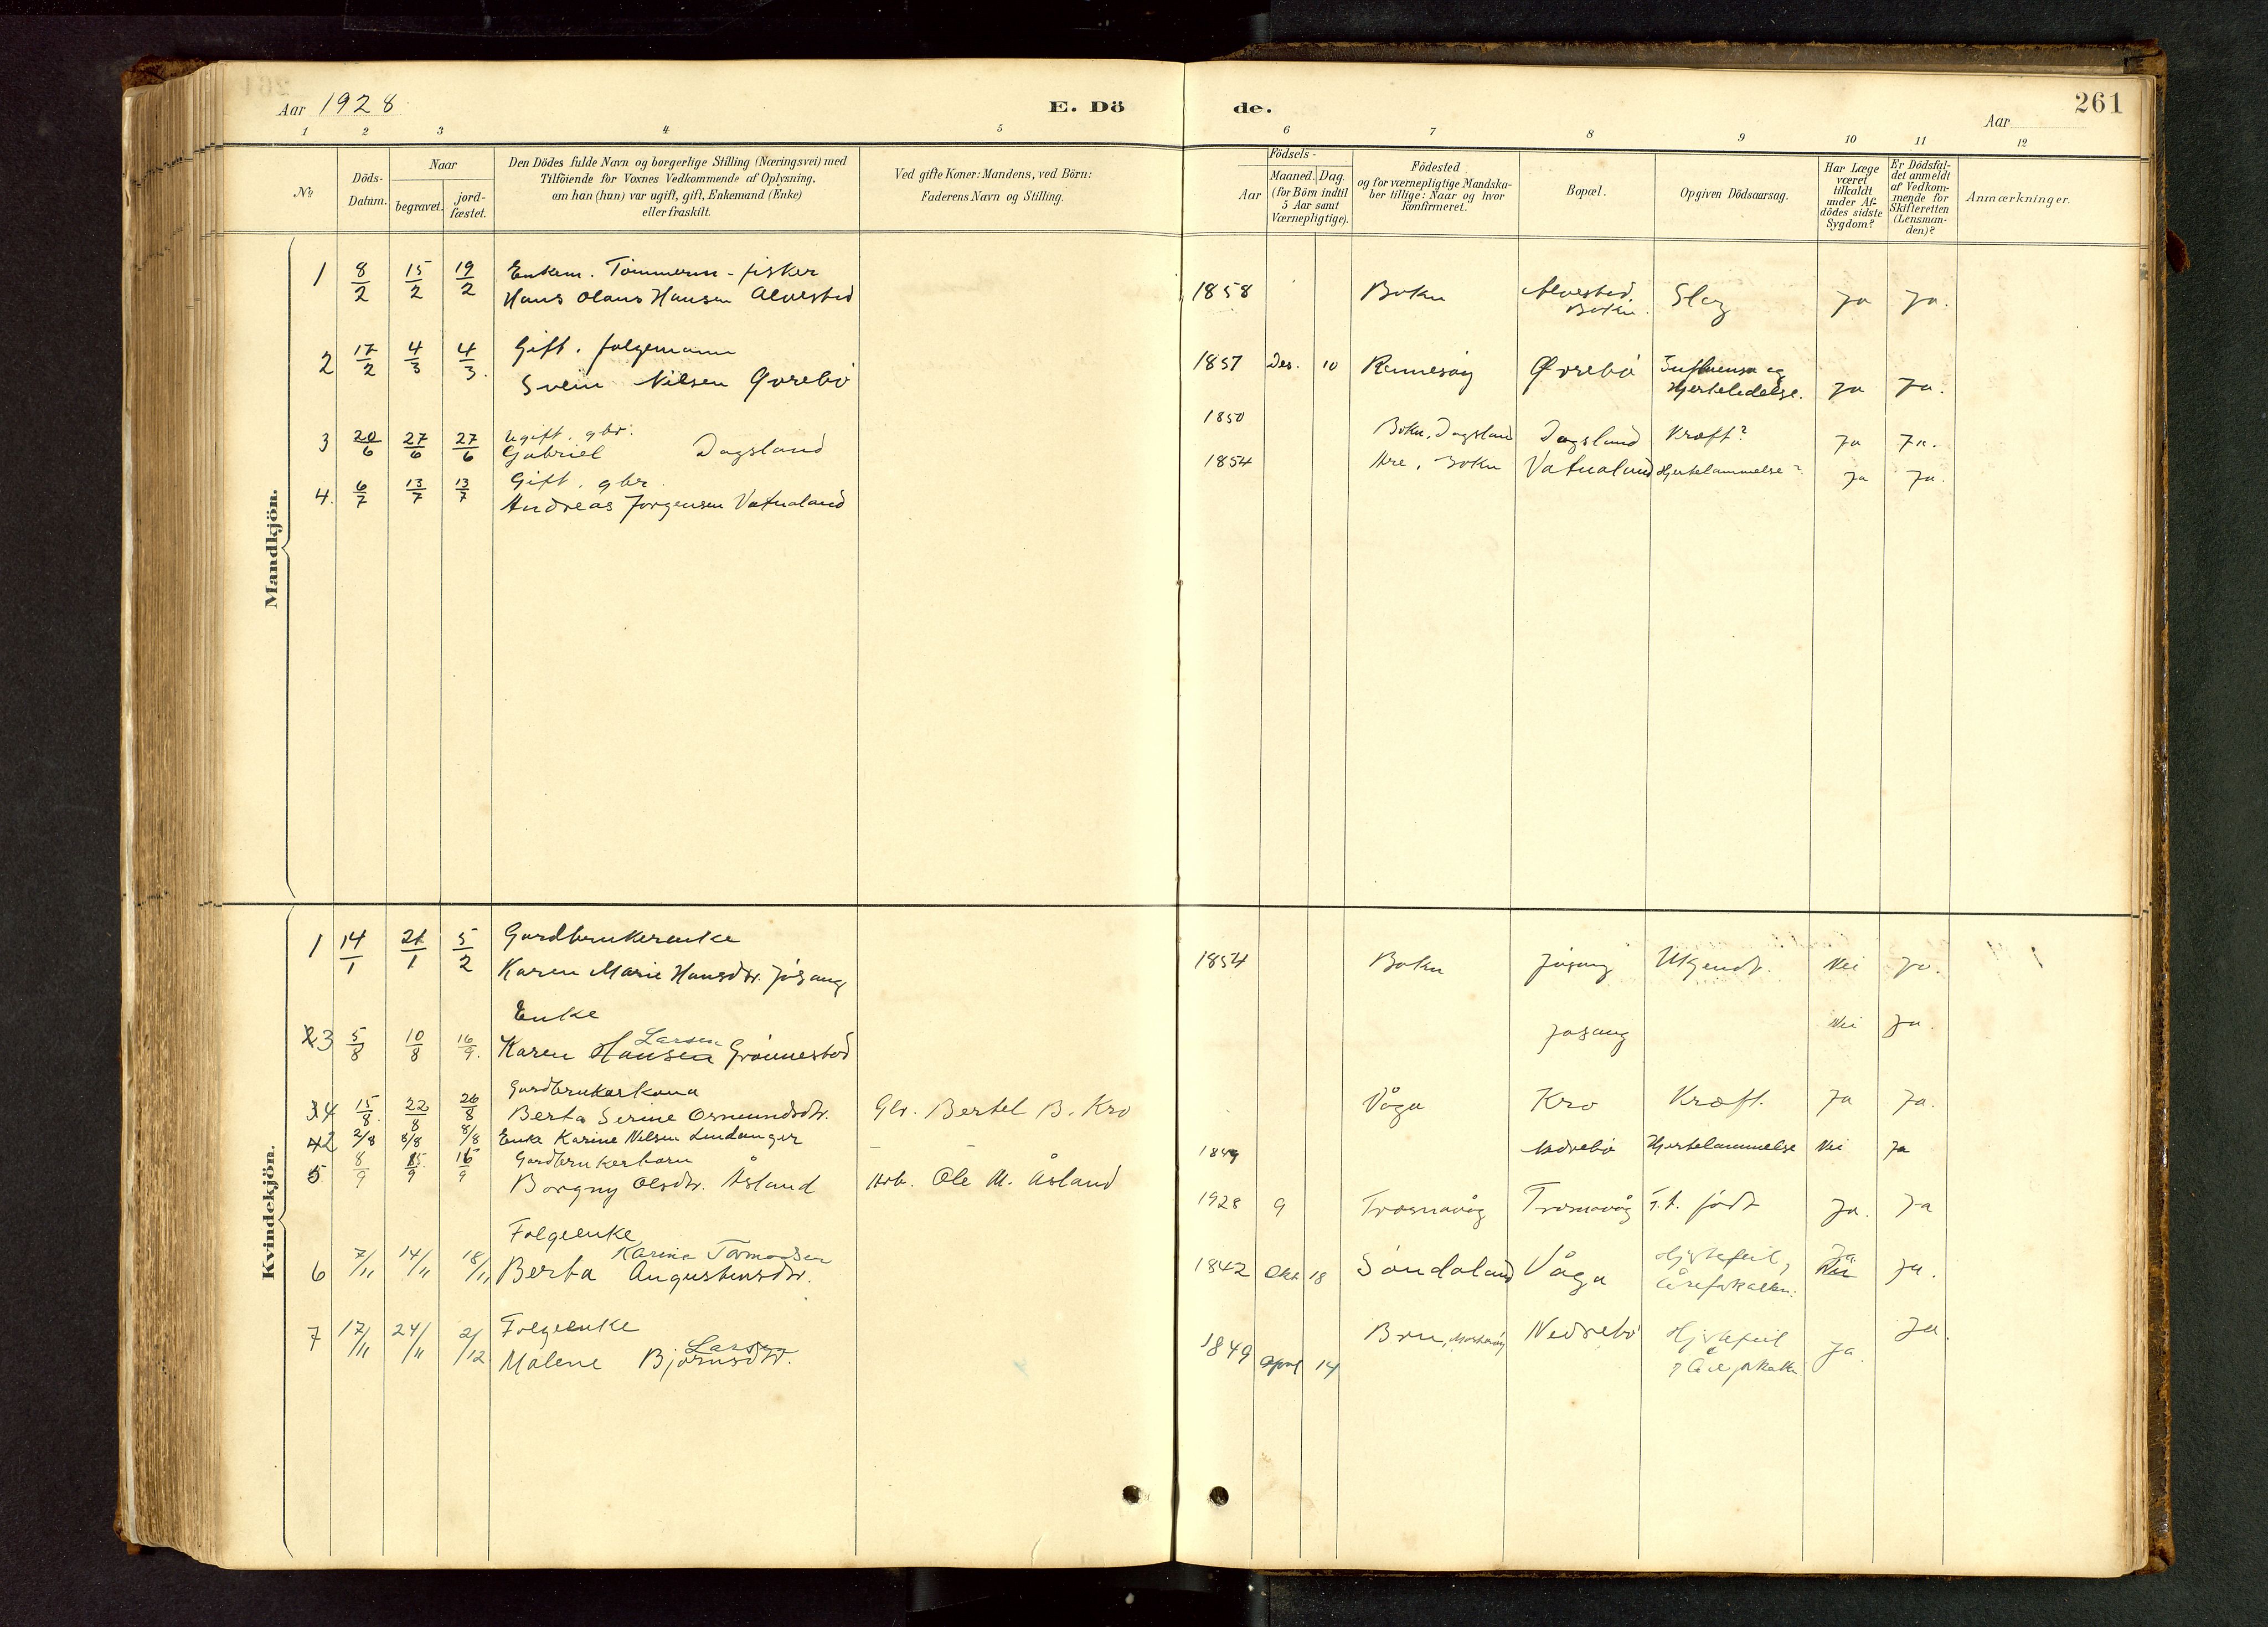 Aar 1928
E. Dö
de.
Aar
261
1 2 3 4 5 6 7 8 9 10 11 12
No
Döds-
Datum.
Naar
begravet.
jord-
fæstet.
Den Dödes fulde Navn og borgerlige Stilling (Næringsvei) med
Tilföiende for Voxnes Vedkommende af Oplysning,
om han (hun) var ugift, gift, Enkemand (Enke)
eller fraskilt.
Ved gifte Koner: Mandens, ved Börn:
Faderens Navn og Stilling.
Födsels-
Aar
Maaned. Dag.
(for Börn indtil
5 Aar samt
Værnepligtige).
Födested
og for værnepligtige Mandska-
ber tillige: Naar og hvor
konfirmeret.
Bopæl.
Opgiven Dödsaarsag.
Har Læge
været
tilkaldt
under Af-
dödes sidste
Sygdom?
Er Dödsfal-
det anmeldt
af Vedkom-
mende for
Skifteretten
(Lensman-
den)?
Anmærkninger.
Mandkjön.
1 8/2 15/2 19/2 Enkem. Tömmerm - fisker
Hans Olaus Hansen Alvestad 1858 Bokn Alvestad, Bokn. Slag Ja Ja.
2 17/2 4/3 4/3. Gift. folgemann
Svein Nilsen Øvrebö 1857 Des. 10 Rennesøy Øvrebö Influensa og
Hjertelidelse. Ja Ja.
3 20/6 27/6 27/6 Ugift. gbr.
Gabriel Dagsland 1850 Bokn, Dagsland Dagsland Kræft? Ja Ja.
4. 6/7 13/7 13/7 Gift. gbr.
Andreas Jorgensen Vatnaland 1854 Are, Bokn Vatnaland Hjertelammelse? Ja Ja.
Kvindekjön.
1 14/1 21/1 5/2 Gardbrukerenke
Karen Marie Hansdtr. Jøsang 1854 Bokn Jøsang Ukjendt. Nei Ja.
3 5/8 10/8 16/9. Enke
Larsen
Karen Hansen Grönnestad Jøsang Nei Ja.
4 15/8. 22/8 26/8 Gardbrukerkona
Berta Serine Osmundsdtr. Gbr. Bertel B. Kro Våga Kro Kræft. Ja Ja.
2 2/8 8/8 8/8 Enke Karine Nilsen Lindanger 1849 Nedrebö Hjertelammelse Nei Ja
5 8/9 15/9 16/9 Gardbrukerbarn
Borgny Olsdtr. Åsland Arb. Ole M. Åsland 1928 9 Trosnavåg Trosnavåg T. t. født Ja. Ja
6 7/11 14/11 18/11 Folgeenke
Karina Tormodsen
Berta Augustinsdtr. 1842 Okt 18 Søndaland Våga Hjertefeil,
Åreforkalkn. Ja
Nei Ja.
7 17/11 24/11 2/12 Folgeenke
Larsen
Malene Bjørnsdtr. 1849 April 14 Bru, Mosterøy Nedrebö Hjertefeil
Ja. Ja.